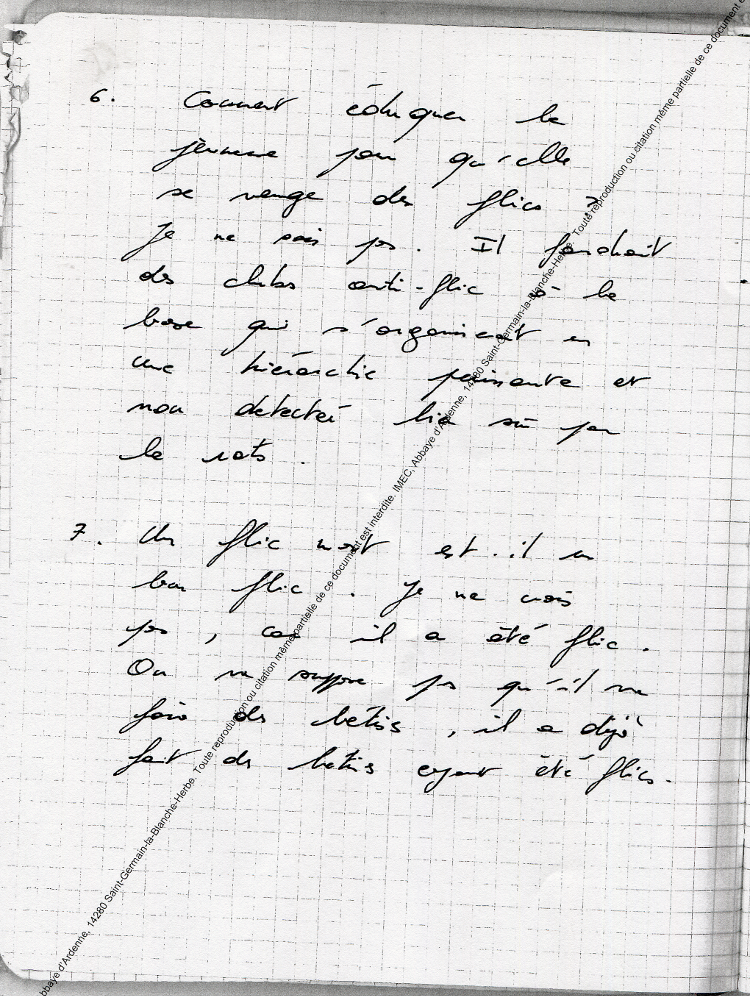 6. Comment éduquer la
jeunesse pour qu'elle
se venge des flics ?
Je ne sais pas. Il faudrait
des clubs anti-flic à la
base qui s'organiserait en
une hiérarchie puissante et
non detecteé bien sûr par
le rats.
7. Un flic mort est-il un
bon flic. Je ne crois
pas, car il a été flic.
On ne suppose pas qu'il ne
fais des bêtises, il a déjà
fait des bêtises ayant été flics.
Abbaye d'Ardenne, 14280 Saint-Germain-la-Blanche-Herbe. Toute reproduction ou citation même partielle de ce document est interdite. IMEC, Abbaye d'Ardenne, 14280 Saint-Germain-la-Blanche-Herbe. Toute reproduction ou citation même partielle de ce document